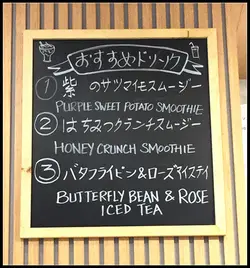 おすすめドリンク
① 紫 のサツマイモスムージー
PURPLE SWEET POTATO SMOOTHIE
② はちみつクランチスムージー
HONEY CRUNCH SMOOTHIE
③ バタフライピン&ローズマイスティ
BUTTERFLY BEAN & ROSE
ICED TEA